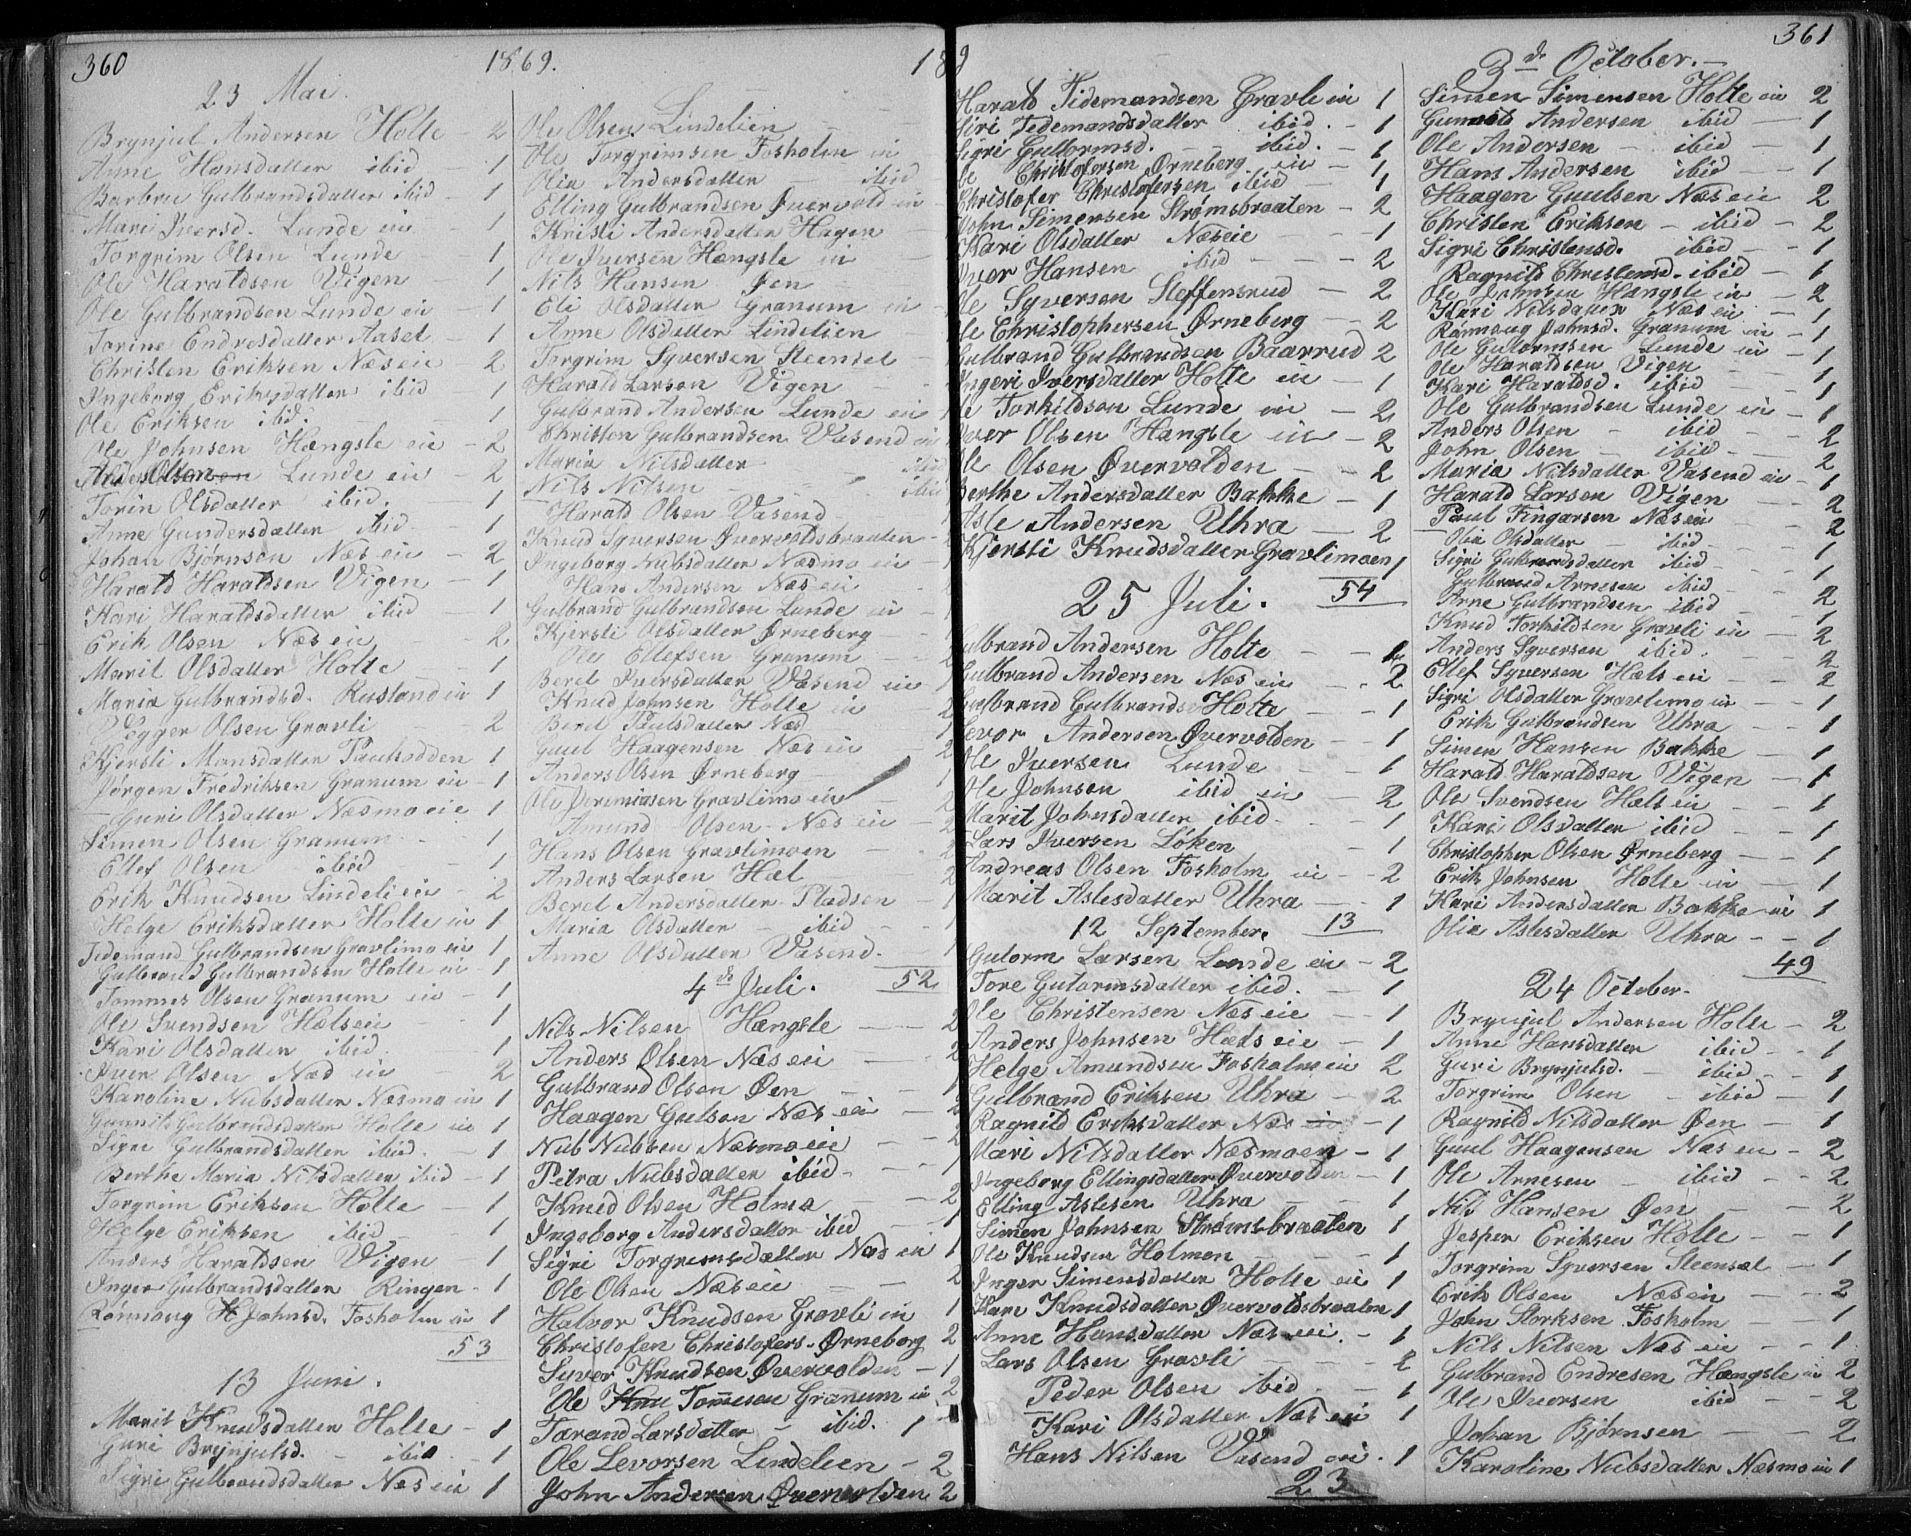 360
1869.
23 Mai.
Brynjul Andersen Holte - 2
Anne Hansdatter ibid - 1
Barbro Gulbrandsdatter ibid - 1
Mari Iversd. Lunde eie - 1
Torgrim Olsen Lunde 1
Ole Haraldsen Vigen - 1
Ole Gulbrandsen Lunde ei - 1
Torine Endresdatter Aaset - 1
Christen Eriksen Næs eie 2
Ingeborg Eriksdatter ibid 1
Ole Eriksen ibid. - 1
Ole Johnsen Hængsle eie - 2
Anders Olsen Lunde eie 2
Torin Olsdatter ibid. 1
Anne Gundersdatter ibid - 1
Johan Bjørnsen Næs eie - 2
Harald Haraldsen Vigen - 1
Kari Haraldsdatter ibid 1
Erik Olsen Næs eie - 2
Marit Olsdatter Holte - 1
Maria Gulbrandsd. Rusland eie 1
Vegger Olsen Gravli 2
Kjersti Monsdatter Paulsodden 1
Jørgen Fredriksen Granum ei - 1
Guri Olsdatter Næsmo eie 1
Simen Olsen Granum - 1
Ellef Olsen ibid - 1
Erik Knudsen Lindelien - 2
Helge Eriksdatter Holte ei 1
Tidemand Gulbrandsen Gravlimo ei 1
Gulbrand Gulbrandsen Holte ei - 1
Tommes Olsen Granum ei - 1
Ole Svendsen Hælseie - 1
Kari Olsdatter ibid. 1
Iver Olsen Næs ei - 2
Karoline Nubsdatter Næsmo ei 1
Gunnild Gulbrandsdatter Holte ei 1
Sigri Gulbrandsdatter ibid. - 1
Berthe Maria Nilsdatter ibid - 1
Torgrim Eriksen Holte - 1
Helge Eriksen ibid - 1
Anders Haraldsen Vigen 1
Inger Gulbrandsdatter Ringen - 1
Rønnaug Johnsd. Fosholm ei 1
53
13 Juni.
Marit Knudsdatter Holte - 1
Guri Brynjulsd. - ibid - 1
Sigri Gulbrandsdatter Næs eie 1
Ole Olsen Lindelien -
Ole Torgrimsen Fosholm ei -
Olia Andersdatter ibid
Elling Gulbrandsen Øvervold ei -
Kristi Andersdatter Hagen -
Ole Iversen Hængsle ei -
Nils Hansen Øen -
Eli Olsdatter Granum ei -
Anne Olsdatter Lindelien
Torgrim Syversen Steensel -
Harald Larsen Vigen
Gulbrand Andersen Lunde ei
Christen Gulbrandsen Vasend ei
Maria Nilsdatter ibid
Nils Nilsen - ibid
Harald Olsen Vasend
Knud Syversen Øvervoldsbraaten -
Ingeborg Nubsdatter Næsmo ei - 1
Hans Andersen Næs ei
Gulbrand Gulbrandsen Lunde ei -
Kjersti Olsdatter Ørneberg
Ole Ellefsen Granum - 2
Beret Iversdatter Vasend ei - 1
Knud Johnsen Holte ei - 2
Beret Paulsdatter Næs - 1
Guul Haagensen Næs ei 2
Anders Olsen Ørneberg - 1
Ole Jeremiasen Gravlimo eie 2
Amund Olsen Næs ei - 2
Hans Olsen Gravlimoen - 2
Anders Larsen Hæl 2
Beret Andersdatter Pladsen - 1
Maria Olsdatter - ibid - 1
Anne Olsdatter Vasend. - 1
52
4de Juli.
Nils Nilsen Hængsle - 2
Anders Olsen Næs eie - 2
Gulbrand Olsen Øen - 1
Haagen Gulsen Næs eie - 2
Nub Nubsen Næsmo eie - 2
Petra Nubsdatter ibid - 1
Knud Olsen Holma - 2
Ingeborg Andersdatter ibid - 1
Sigri Torgrimsdatter Næs ei 1
Ole Olsen Næs eie - 2
Halvor Knudsen Gravli ei 1
Christofer Christofers. Ørneberg 2
Syver Knudsen Øvervolden - 1
Ole Tommesen Granum ei 2
Tarand Larsdatter - ibid. 1
Ole Levorsen Lindelien - 2
John Andersen Øvervolden 2
361
Harald Tidemandsen Gravli ei 1
Siri Tedemandsdatter ibid. - 1
Sigri Guttormsd. - ibid. - 1
Christofersen Ørneberg ei - 1
Christofer Christofersen ibid - 1
John Simensen Strømsbraaten - 2
Kari Olsdatter Næs eie - 1
Iver Hansen ibid - 2
Ole Syversen Steffensrud - 2
Ole Christophersen Ørneberg - 2
Gulbrand Gulbrandsen Baarrud 2
Ingeri Iversdatter Holte ei - 1
Ole Torkildsen Lunde ei - 2
Iver Olsen Hængsle ei - 2
Ole Olsen Øvervolden - 2
Berthe Andersdatter Bakke - 1
Asle Andersen Uhra - 2
Kjersti Knudsdatter Gravlimoen 1
54
25 Juli.
Gulbrand Andersen Holte -
Gulbrand Andersen Næs eie - 2
Gulbrand Gulbrands. Holte - 1
Levor Andersen Øvervolden - 1
Ole Iversen Lunde - 1
Ole Johnsen ibid ei - 2
Marit Johnsdatter ibid. - 1
Lars Iversen Løken - 1
Andreas Olsen Fosholm ei - 2
Marit Aslesdatter Uhra - 1
13
12 September.
Gutorm Larsen Lunde ei - 2
Tore Gutormsdatter ibid. - 1
Ole Christensen Næs eie - 1
Anders Johnsen Hæls eie - 1
Helge Amundsen Fosholm ei 2
Gulbrand Eriksen Uhra - 2
Ragnild Eriksdatter Næs ei - 1
Mari Nilsdatter Næsmoen - 1
Ingeborg Ellingsdatter Øvervolden - 1
Elling Aslesen Uhra - 1
Simen Johnsen Strømsbraaten 1
Ole Knudsen Holmen - 1
Inger Simensdatter Holte ei 1
Kari Knudsdatter Øvervoldsbraaten 1
Anne Hansdatter Næs eie - 1
Lars Olsen Gravli - 2
Peder Olsen ibid - 1
Kari Olsdatter Næs ei 1
Hans Nilsen Vasend ei - 1
23
3de October. -
Simen Simensen Holte ei 2
Gunnild Andersen ibid - 1
Ole Andersen - ibid - 1
Hans Andersen ibid - 1
Haagen Guulsen Næs ei 2
Christen Eriksen - ibid - 2
Sigri Christensd. ibid - 1
Ragnild Christensd. ibid - 1
Ole Johnsen Hængsle ei - 2
Kari Nilsdatter Næs ei - 1
Rønnaug Johnsd. Granum ei - 1
Ole Gutormsen Lunde ei - 1
Ole Haraldsen Vigen - 1
Kari Haraldsd. ibid - 1
Ole Gulbrandsen Lunde ei - 1
Anders Olsen - ibid - 2
John Olsen - ibid - 2
Maria Nilsdatter Vasend ei - 1
Harald Larsen Vigen 2
Paul Fingarsen Næs ei 2
Olia Olsdatter - ibid - 1
Sigri Gulbrandsdatter ibid - 1
Gulbrand Arnesen ibid - 2
Arne Gulbrandsen ibid - 1
Knud Torkildsen Gravli ei - 2
Anders Syversen ibid. - 2
Ellef Syversen Hæls ei - 2
Sigri Olsdatter Gravlimo ei - 1
Erik Gulbrandsen Uhra - 1
Simen Hansen Bakke - 1
Harald Haraldsen Vigen - 1
Ole Svendsen Hæls ei - 1
Kari Olsdatter ibid - 1
Christopher Olsen Ørneberg - 1
Erik Johnsen Holte ei - 1
Kari Andersdatter Bakke ei 1
Olia Aslesdatter Uhra - 1
49
24 October.
Brynjul Andersen Holte - 2
Anne Hansdatter ibid - 1
Guri Brynjulsd. - ibid - 1
Torgrim Olsen - ibid - 1
Ragnild Nilsdatter Øen - 1
Guul Haagensen Næs ei - 2
Ole Arnesen - ibid - 2
Nils Hansen Øen - 2
Jesper Eriksen Holte - 1
Torgrim Syversen Steensæt - 1
Erik Olsen Næs ei - 2
John Storksen Fosholm - 1
Nils Nilsen Næs ei - 1
Gulbrand Endresen Hængsle ei 2
Ole Iversen ibid - 2
Johan Bjørnsen - 2
Karoline Nubsdatter Næsmo ei 1